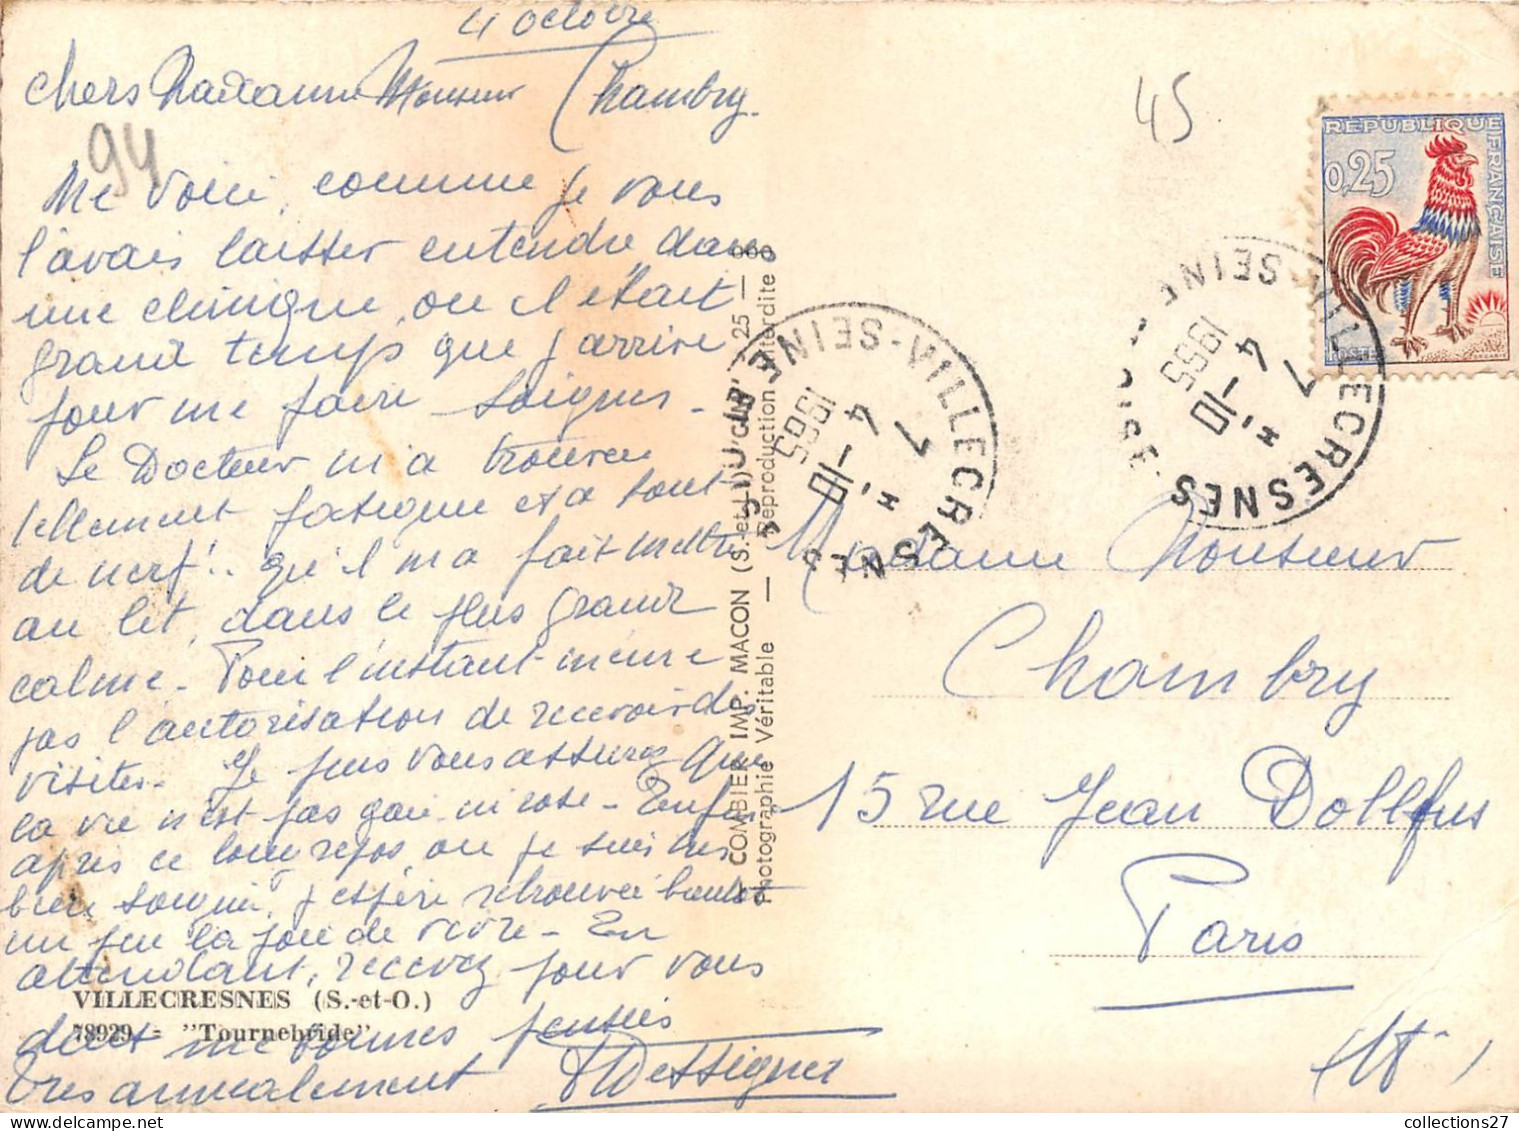 4 octobre
chers Madame Monsieur Chambry.
94
Me voici, comme je vous
l'avais laisser entendre dans
une clinique, ou il était
grand temps que j'arrive
pour me faire soigner.
Le Docteur m'a trouvée
tellement fatiguée et a bout
de nerf!.. qu'il m'a fait mettre
au lit, dans le plus grand
calme. Pour l'instant même
pas l'autorisation de recevoir des
visites. Je puis vous assurez que
la vie n'est pas gaie ni rose. Enfin
après ce long repos, ou je suis très
bien soignée, j'espère retrouver
un peu la joie de vivre. En
attendant, recevez pour vous
deux mes bonnes pensées
Très amicalement
VILLECRESNES (S.-et-O.)
78929 - "Tournebride"
COMBIER IMP. MACON (S.-et-L.)
Photographie Véritable — Reproduction Interdite
45
REPUBLIQUE FRANÇAISE
0,25
POSTES
VILLECRESNES
SEINE-
7 H.
4-10
1965
VILLECRESNES
SEINE-
7 H.
4-10
1965
Madame Monsieur
Chambry
15 rue Jean Dollfus
Paris
collections27